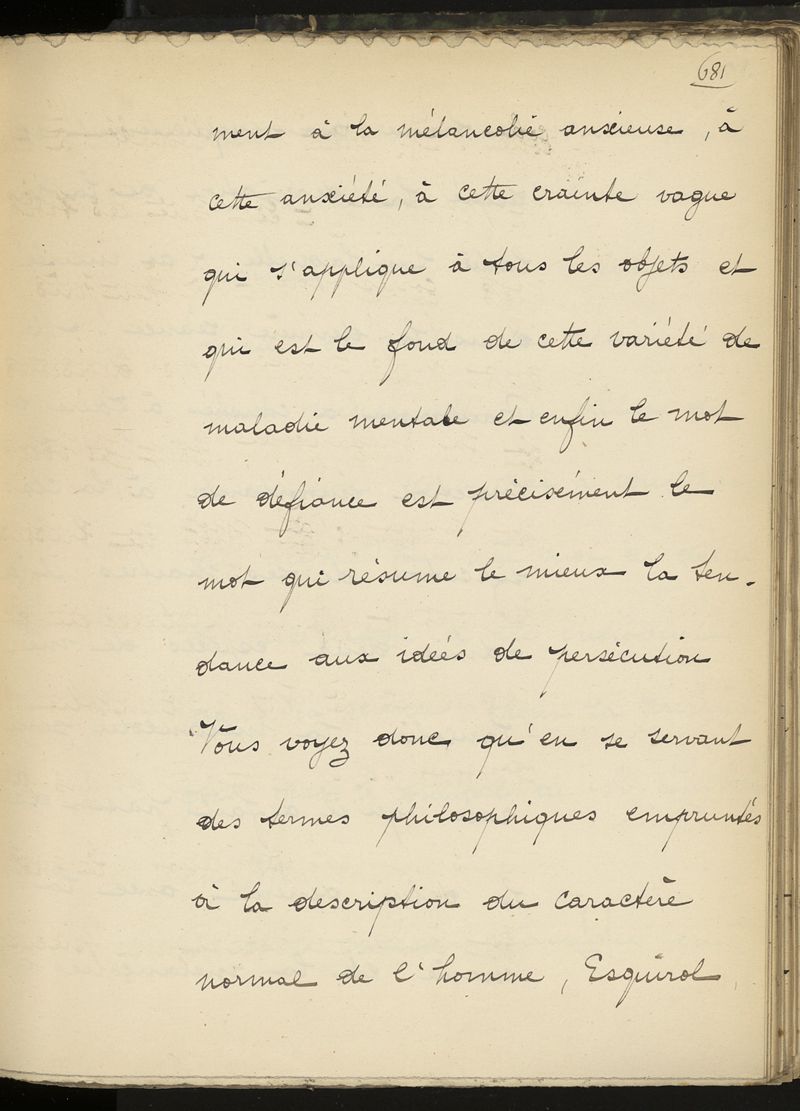 681
ment à la mélancolie anxieuse, à
cette anxiété, à cette crainte vague
qui s'applique à tous les objets et
qui est le fond de cette variété de
maladie mentale et enfin le mot
de défiance est précisément le
mot qui résume le mieux la ten-
dance aux idées de persécution
Vous voyez donc qu'en se servant
des termes philosophiques empruntés
à la description du caractère
normal de l'homme, Esquirol